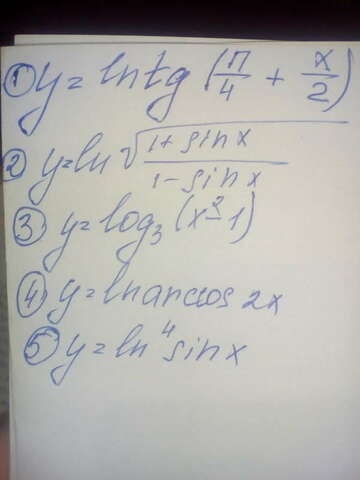 ① y = ln tg (π/4 + x/2)
② y = ln √((1 + sin x)/(1 - sin x))
③ y = log₃ (x² - 1)
④ y = ln arccos 2x
⑤ y = ln⁴ sin x